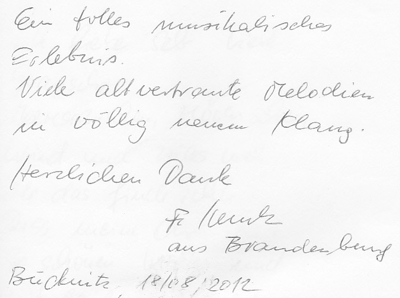 Ein tolles musikalisches
Erlebnis.
Viele altvertraute Melodien
in völlig neuem Klang.
Herzlichen Dank
F.
aus Brandenburg
18/08/2012